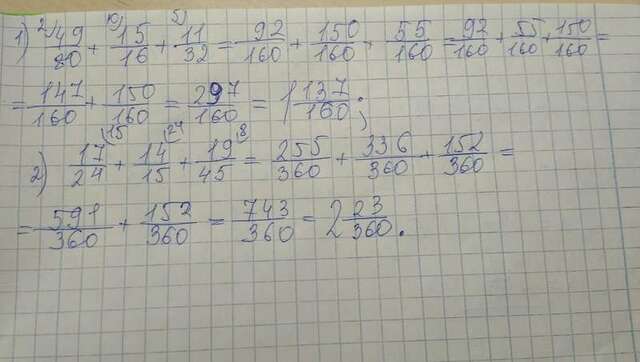 1) 49/80 (2 + 15/16 (10 + 11/32 (5 = 92/160 + 150/160 + 55/160 = 92/160 + 55/160 + 150/160 =
= 147/160 + 150/160 = 297/160 = 1 137/160;
2) 17/24 (15 + 14/15 (24 + 19/45 (8 = 255/360 + 336/360 + 152/360 =
= 591/360 + 152/360 = 743/360 = 2 23/360.